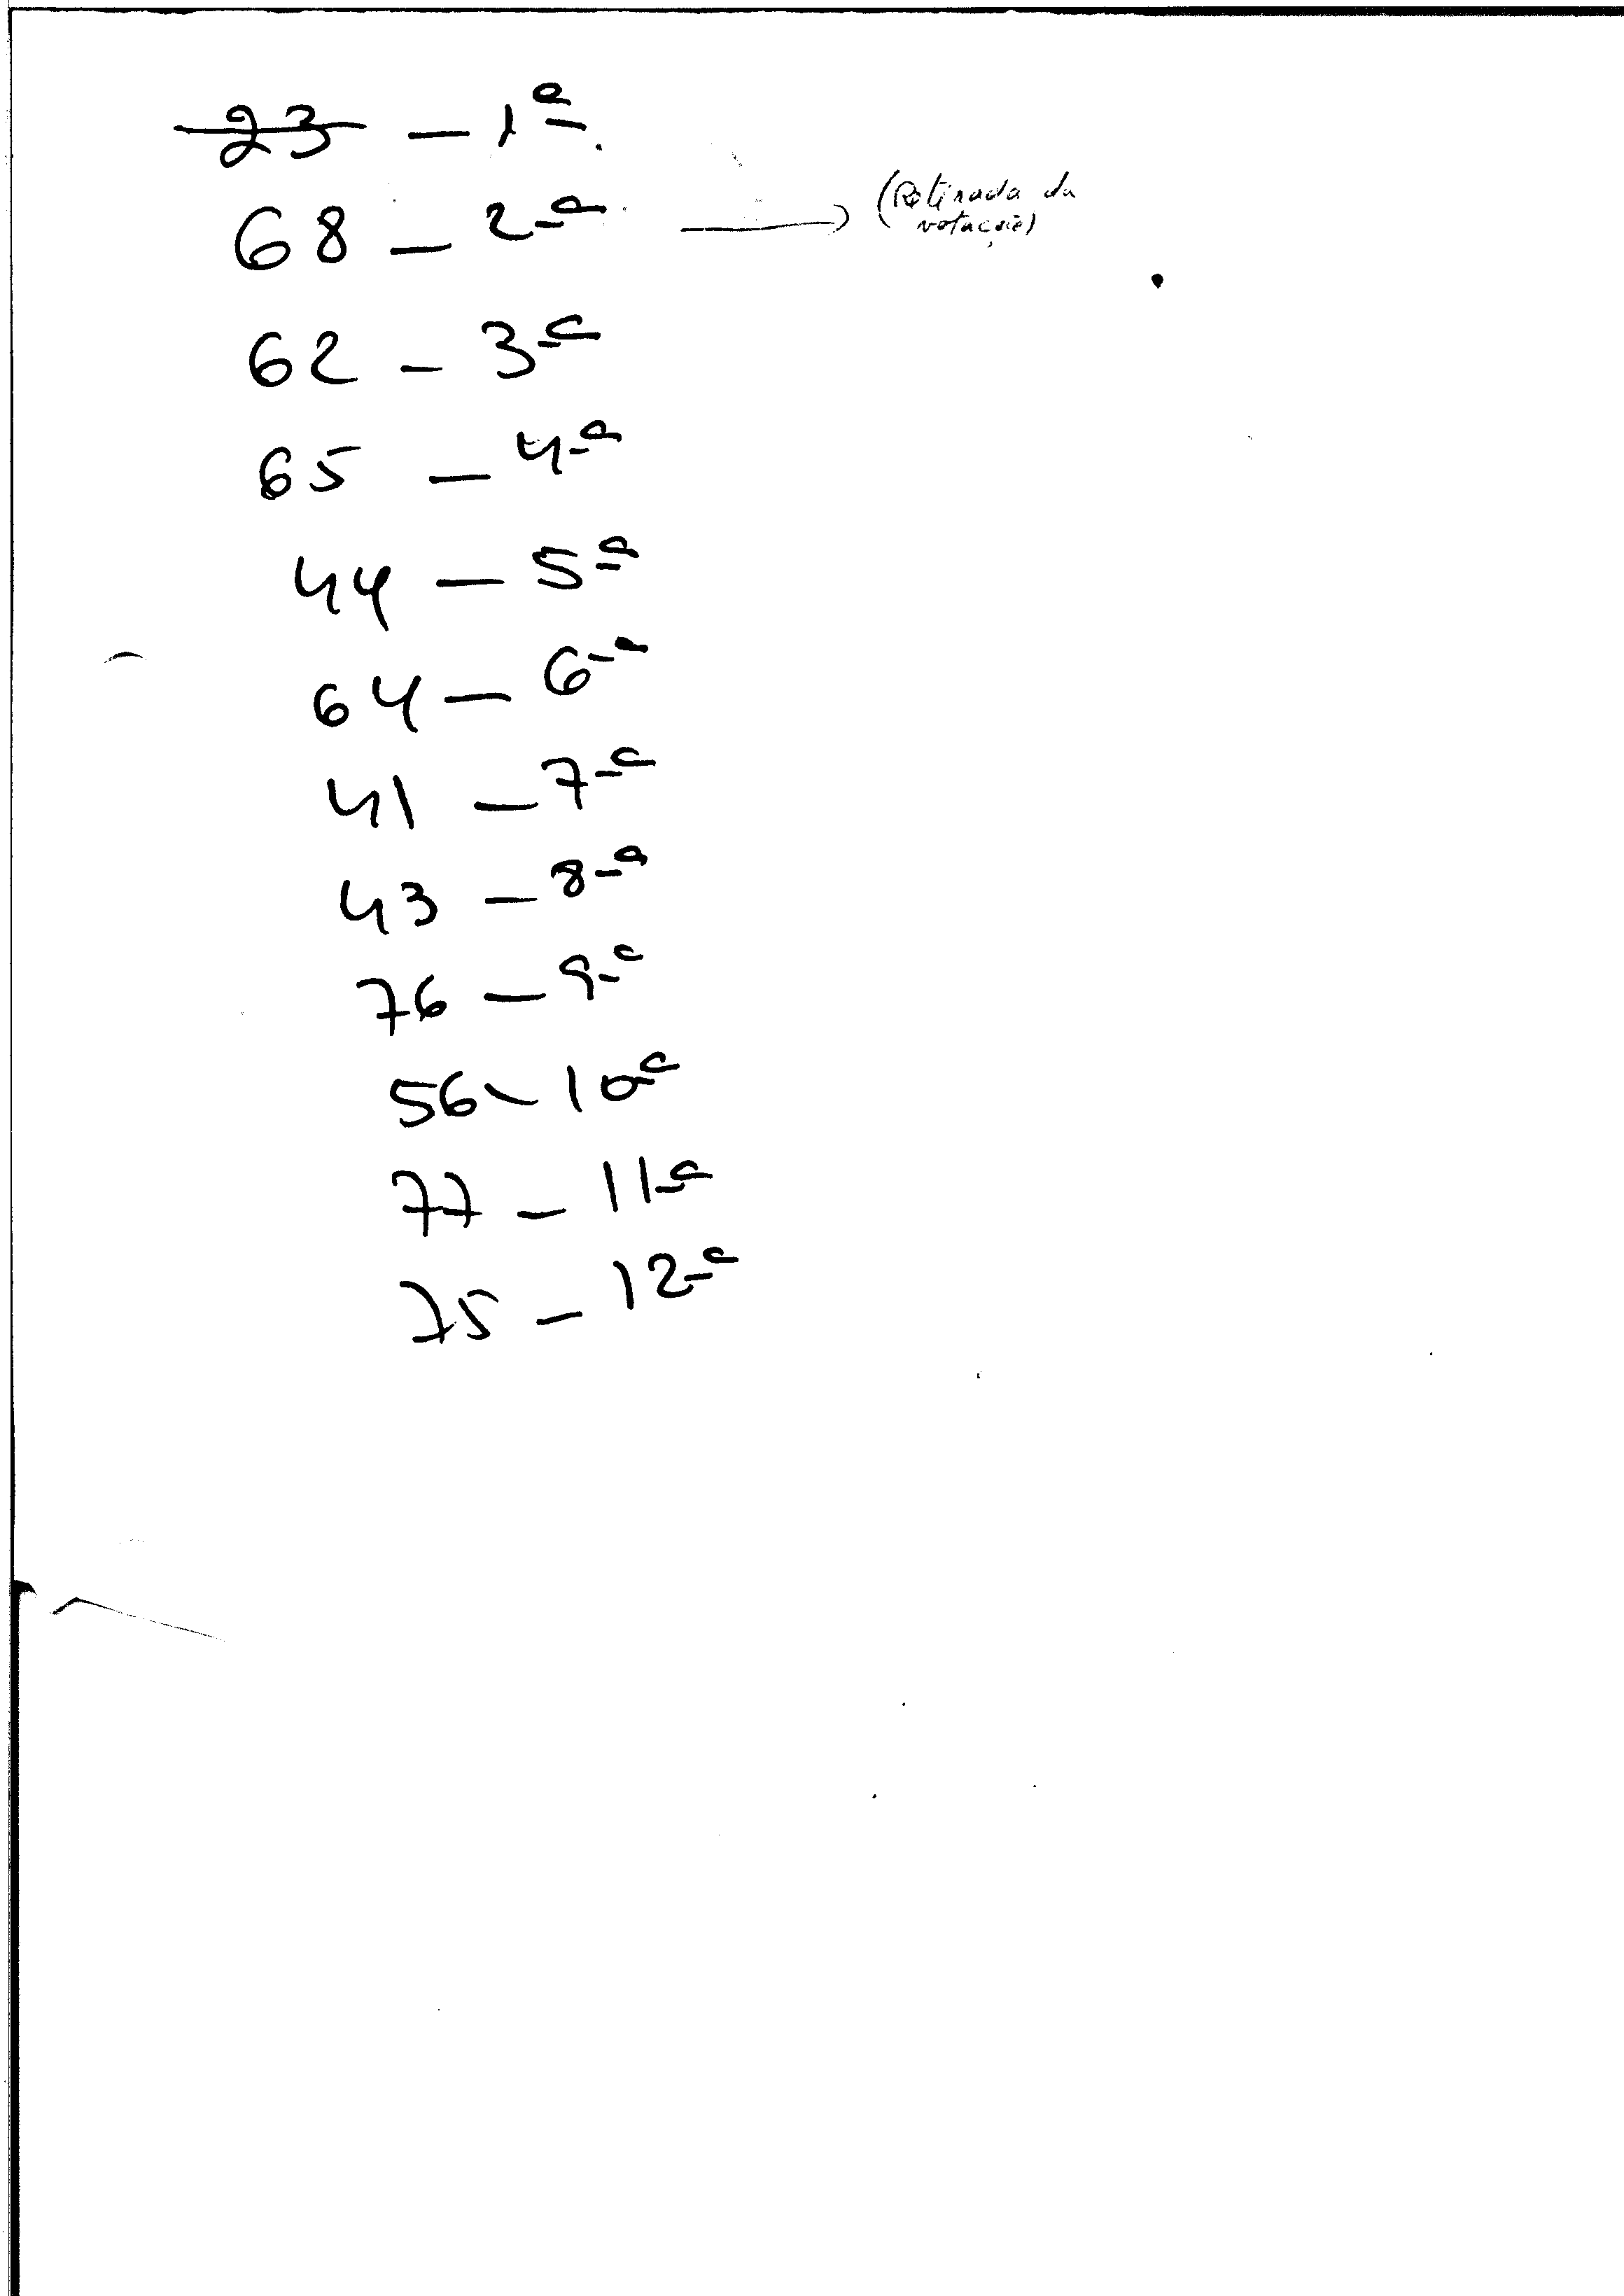 23 – 1ª
68 – 2ª → (Retirada da
votação)
62 – 3ª
65 – 4ª
44 – 5ª
64 – 6ª
41 – 7ª
43 – 8ª
76 – 9ª
56 – 10ª
77 – 11ª
75 – 12ª